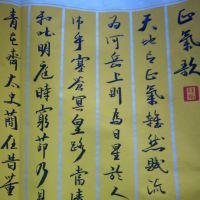 正氣歌
天地有正氣雜然賦流
為河岳上則為日星於人
沛乎塞蒼冥皇路當清
和吐明庭時窮節乃見
青在齊太史簡在晉董